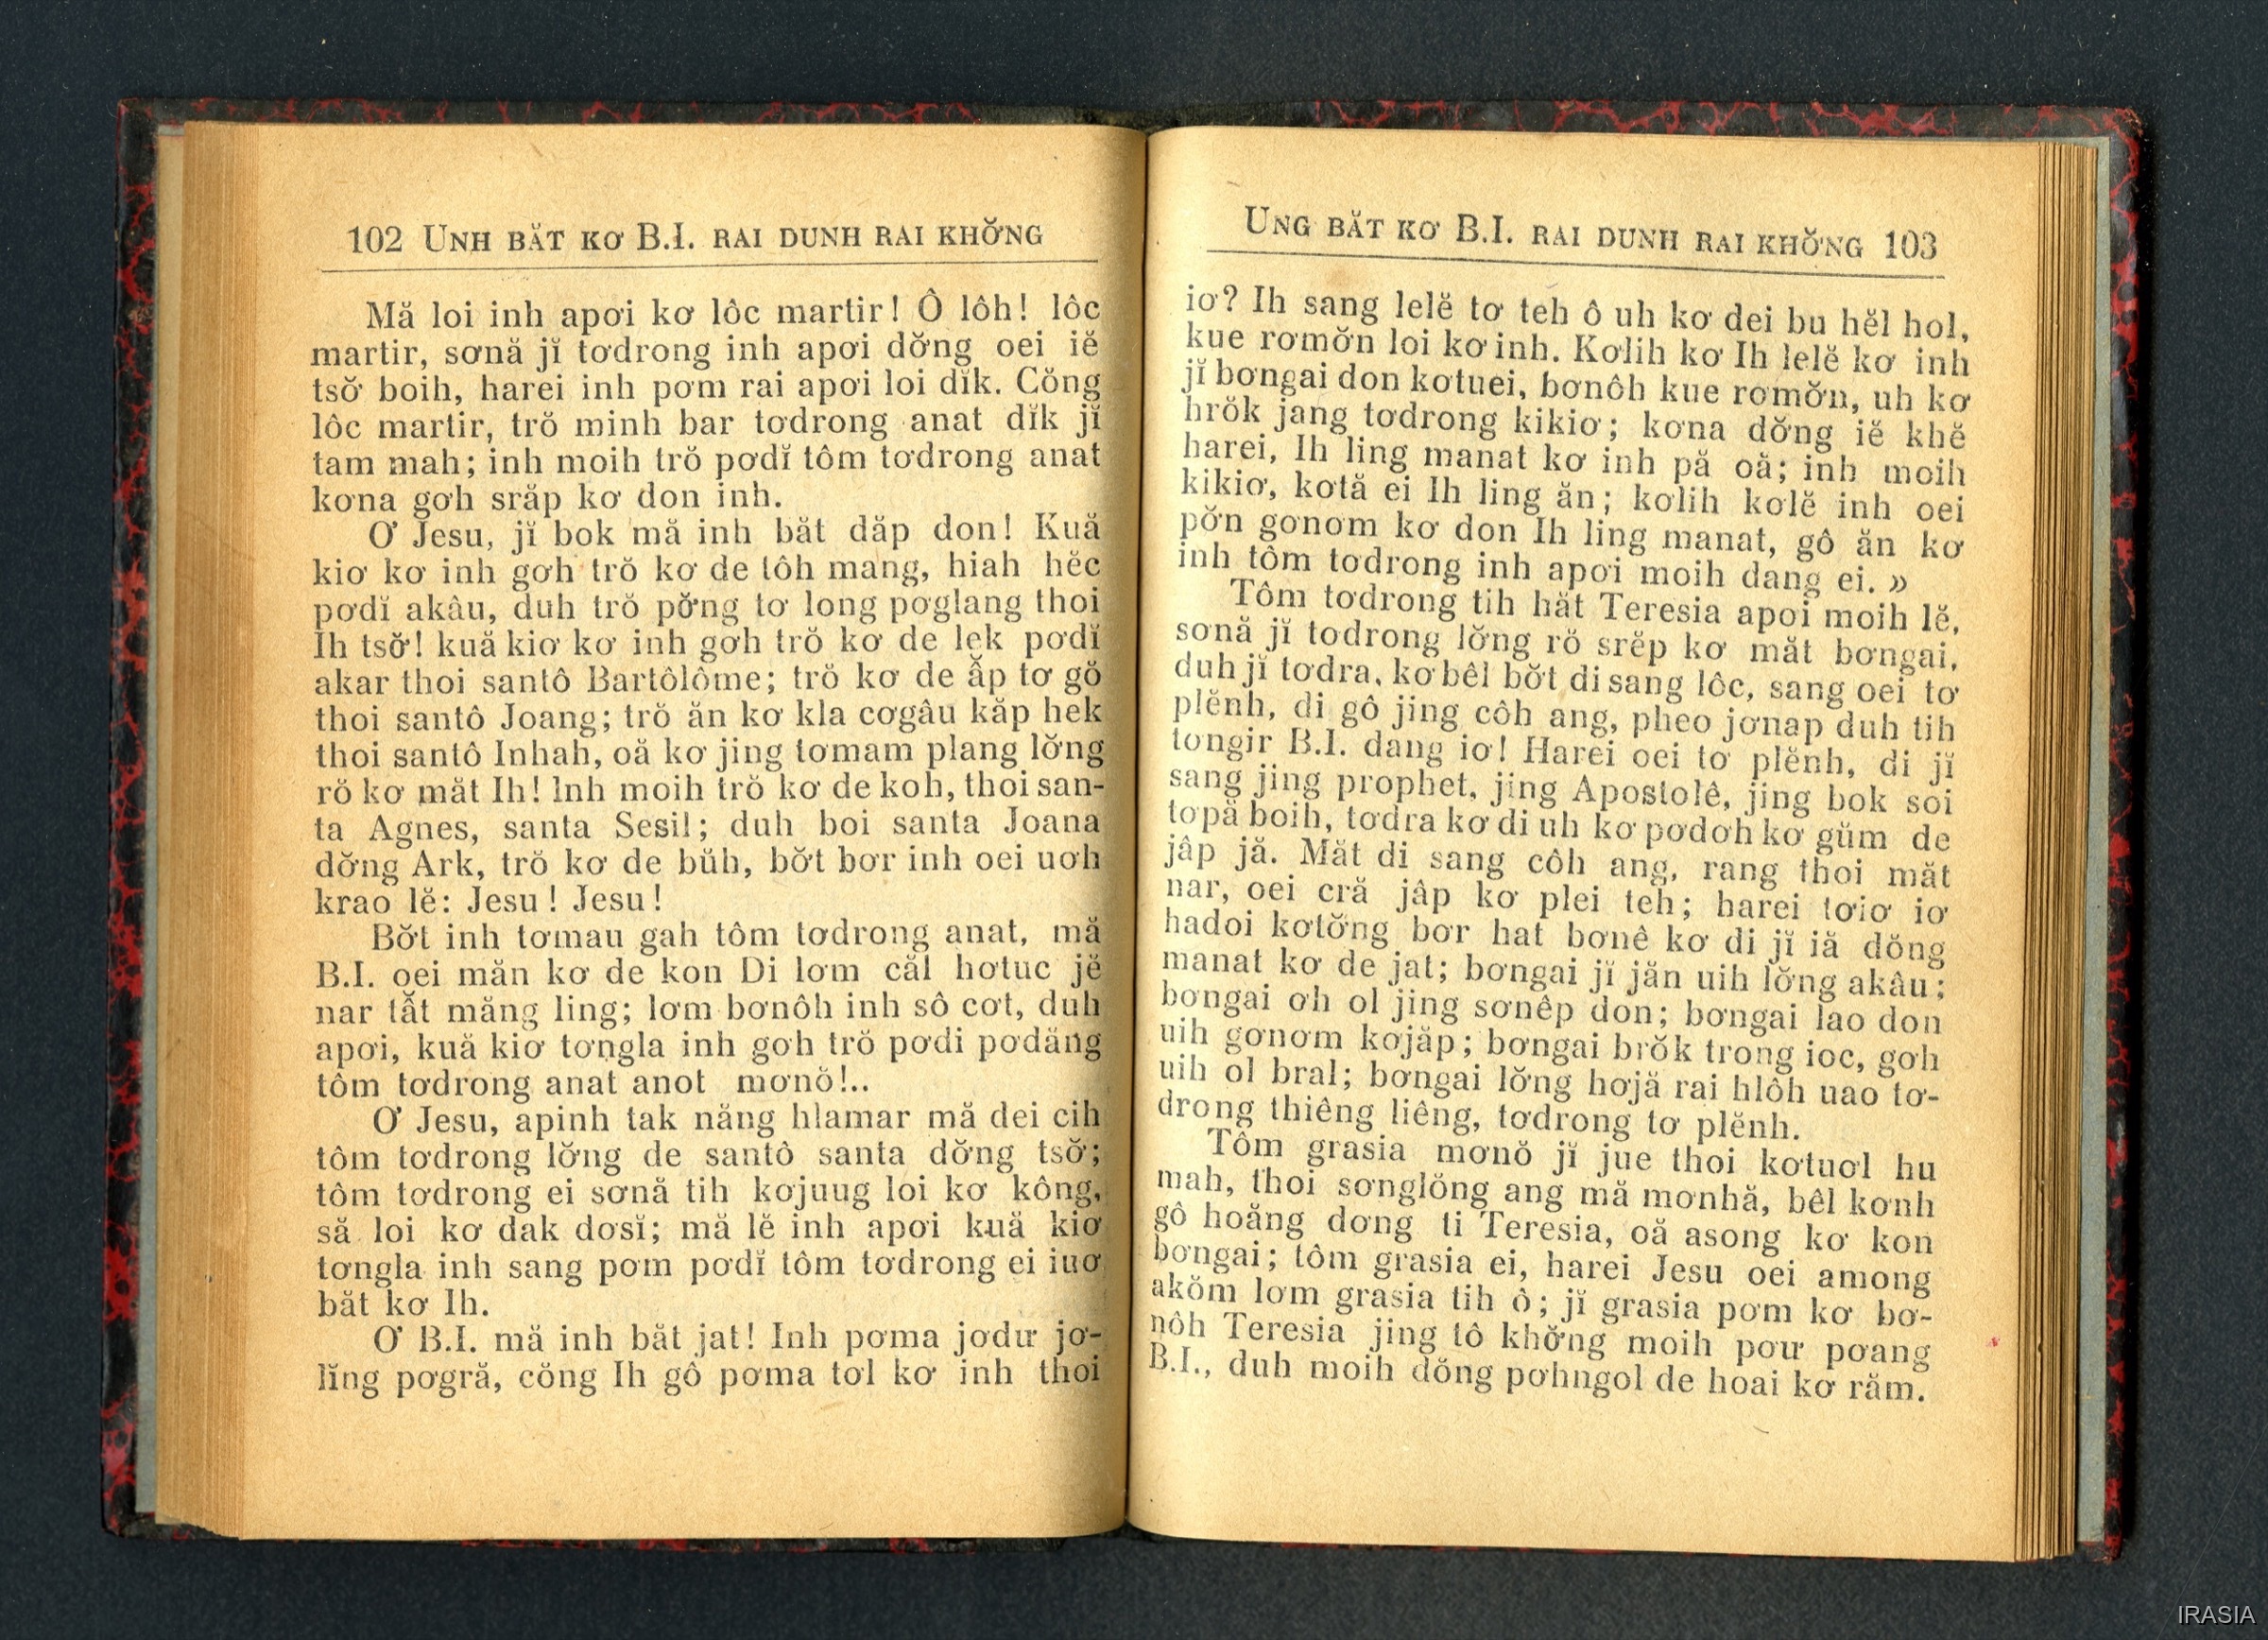 102 UNH BĂT KƠ B.I. RAI DUNH RAI KHƠ̆NG
Mă loi inh apơi kơ lôc martir! Ô lôh! lôc
martir, sơnă jĭ tơdrong inh apơi dơ̆ng oei iĕ
tsơ̆ boih, harei inh pơm rai apơi loi dĭk. Cŏng
lôc martir, trŏ minh bar tơdrong anat dĭk jĭ
tam mah; inh moih trŏ pơdĭ tôm tơdrong anat
kơna gơh srăp kơ don inh.
Ơ Jesu, jĭ bok mă inh băt dăp don! Kuă
kiơ kơ inh gơh trŏ kơ de tôh mang, hiah hĕc
pơdĭ akâu, duh trŏ pơ̆ng tơ long pơglang thoi
Ih tsơ̆! kuă kiơ kơ inh gơh trŏ kơ de lek pơdĭ
akar thoi santô Bartôlôme; trŏ kơ de ẵp tơ gŏ
thoi santô Joang; trŏ ăn kơ kla cơgâu kăp hek
thoi santô Inhah, oă kơ jing tơmam plang lơ̆ng
rŏ kơ măt Ih! Inh moih trŏ kơ de koh, thoi san-
ta Agnes, santa Sesil; duh boi santa Joana
dơ̆ng Ark, trŏ kơ de bŭh, bơ̆t bơr inh oei uơh
krao lĕ: Jesu! Jesu!
Bơ̆t inh tơmau gah tôm tơdrong anat, mă
B.I. oei măn kơ de kon Di lơm căl hơtuc jĕ
nar tẵt măng ling; lơm bơnôh inh sô cơt, duh
apơi, kuă kiơ tơngla inh gơh trŏ pơdi pơdăng
tôm tơdrong anat anot mơnŏ!..
Ơ Jesu, apinh tak năng hlamar mă dei cih
tôm tơdrong lơ̆ng de santô santa dơ̆ng tsơ̆;
tôm tơdrong ei sơnă tih kơjuug loi kơ kông,
să loi kơ dak dơsĭ; mă lĕ inh apơi kuă kiơ
tơngla inh sang pơm pơdĭ tôm tơdrong ei iuơ
băt kơ Ih.
Ơ B.I. mă inh băt jat! Inh pơma jơdư jơ-
lĭng pơgră, cŏng Ih gô pơma tơl kơ inh thoi
UNG BĂT KƠ B.I. RAI DUNH RAI KHƠ̆NG 103
iơ? Ih sang lelĕ tơ teh ô uh kơ dei bu hĕl hol,
kue rơmơ̆n loi kơ inh. Kơlih kơ Ih lelĕ kơ inh
jĭ bơngai don kơtuei, bơnôh kue rơmơ̆n, uh kơ
hrŏk jang tơdrong kikiơ; kơna dơ̆ng iĕ khĕ
harei, Ih ling manat kơ inh pă oă; inh moih
kikiơ, kơtă ei Ih ling ăn; kơlih kơlĕ inh oei
pơ̆n gơnơm kơ don Ih ling manat, gô ăn kơ
inh tôm tơdrong inh apơi moih dang ei. »
Tôm tơdrong tih hăt Teresia apơi moih lĕ,
sơnă jĭ todrong lơ̆ng rŏ srĕp kơ măt bơngai,
duh jĭ tơdra, kơ bêl bơ̆t di sang lôc, sang oei tơ
plĕnh, di gô jing côh ang, pheo jơnap duh tih
tơngir B.I. dang iơ! Harei oei tơ plĕnh, di jĭ
sang jing prophet, jing Apostolê, jing bok soi
tơpă boih, tơdra kơ di uh kơ pơdơh kơ gŭm de
jâp jă. Măt di sang côh ang, rang thoi măt
nar, oei cră jâp kơ plei teh; harei tơiơ iơ
hadoi kơtơ̆ng bơr hat bơnê kơ di jĭ iă dŏng
manat kơ de jat; bơngai jĭ jăn uih lơ̆ng akâu;
bơngai ơh ol jing sơnêp don; bơngai lao don
uih gơnơm kơjăp; bơngai brŏk trong ioc, gơh
uih ol bral; bơngai lơ̆ng hơjă rai hlôh uao tơ-
drong thiêng liêng, tơdrong tơ plĕnh.
Tôm grasia mơnŏ jĭ jue thoi kơtuơl hu
mah, thoi sơnglŏng ang mă mơnhă, bêl kơnh
gô hoăng dơng ti Teresia, oă asong kơ kon
bơngai; tôm grasia ei, harei Jesu oei among
akŏm lơm grasia tih ô; jĭ grasia pơm kơ bơ-
nôh Teresia jing tô khơ̆ng moih pơư pơang
B.I., duh moih dŏng pơhngol de hoai kơ răm.
IRASIA